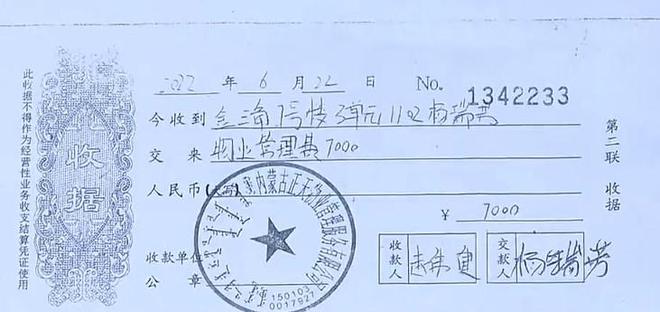 此收据不得作为经营性业务收支结算凭证使用
收据
2022 年 6 月 22 日 No. 1342233
今收到 金 1号楼3单元1102杨瑞芳
交来 物业管理费7000
人民币(大写)
¥ 7000
收款单位
公章
内蒙古正 物业管理服务有限公司
150103
0017927
收款人
交款人 杨瑞芳
第二联 收据